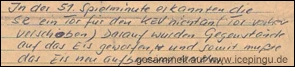 In der 51. Spielminute erkannten die
SR ein Tor für den KEV nicht an (Tor vorher
verschoben) Darauf wurden Gegenstände
auf das Eis geworfen, und somit mußte
das Eis neu
gesammelt auf www.icepingu